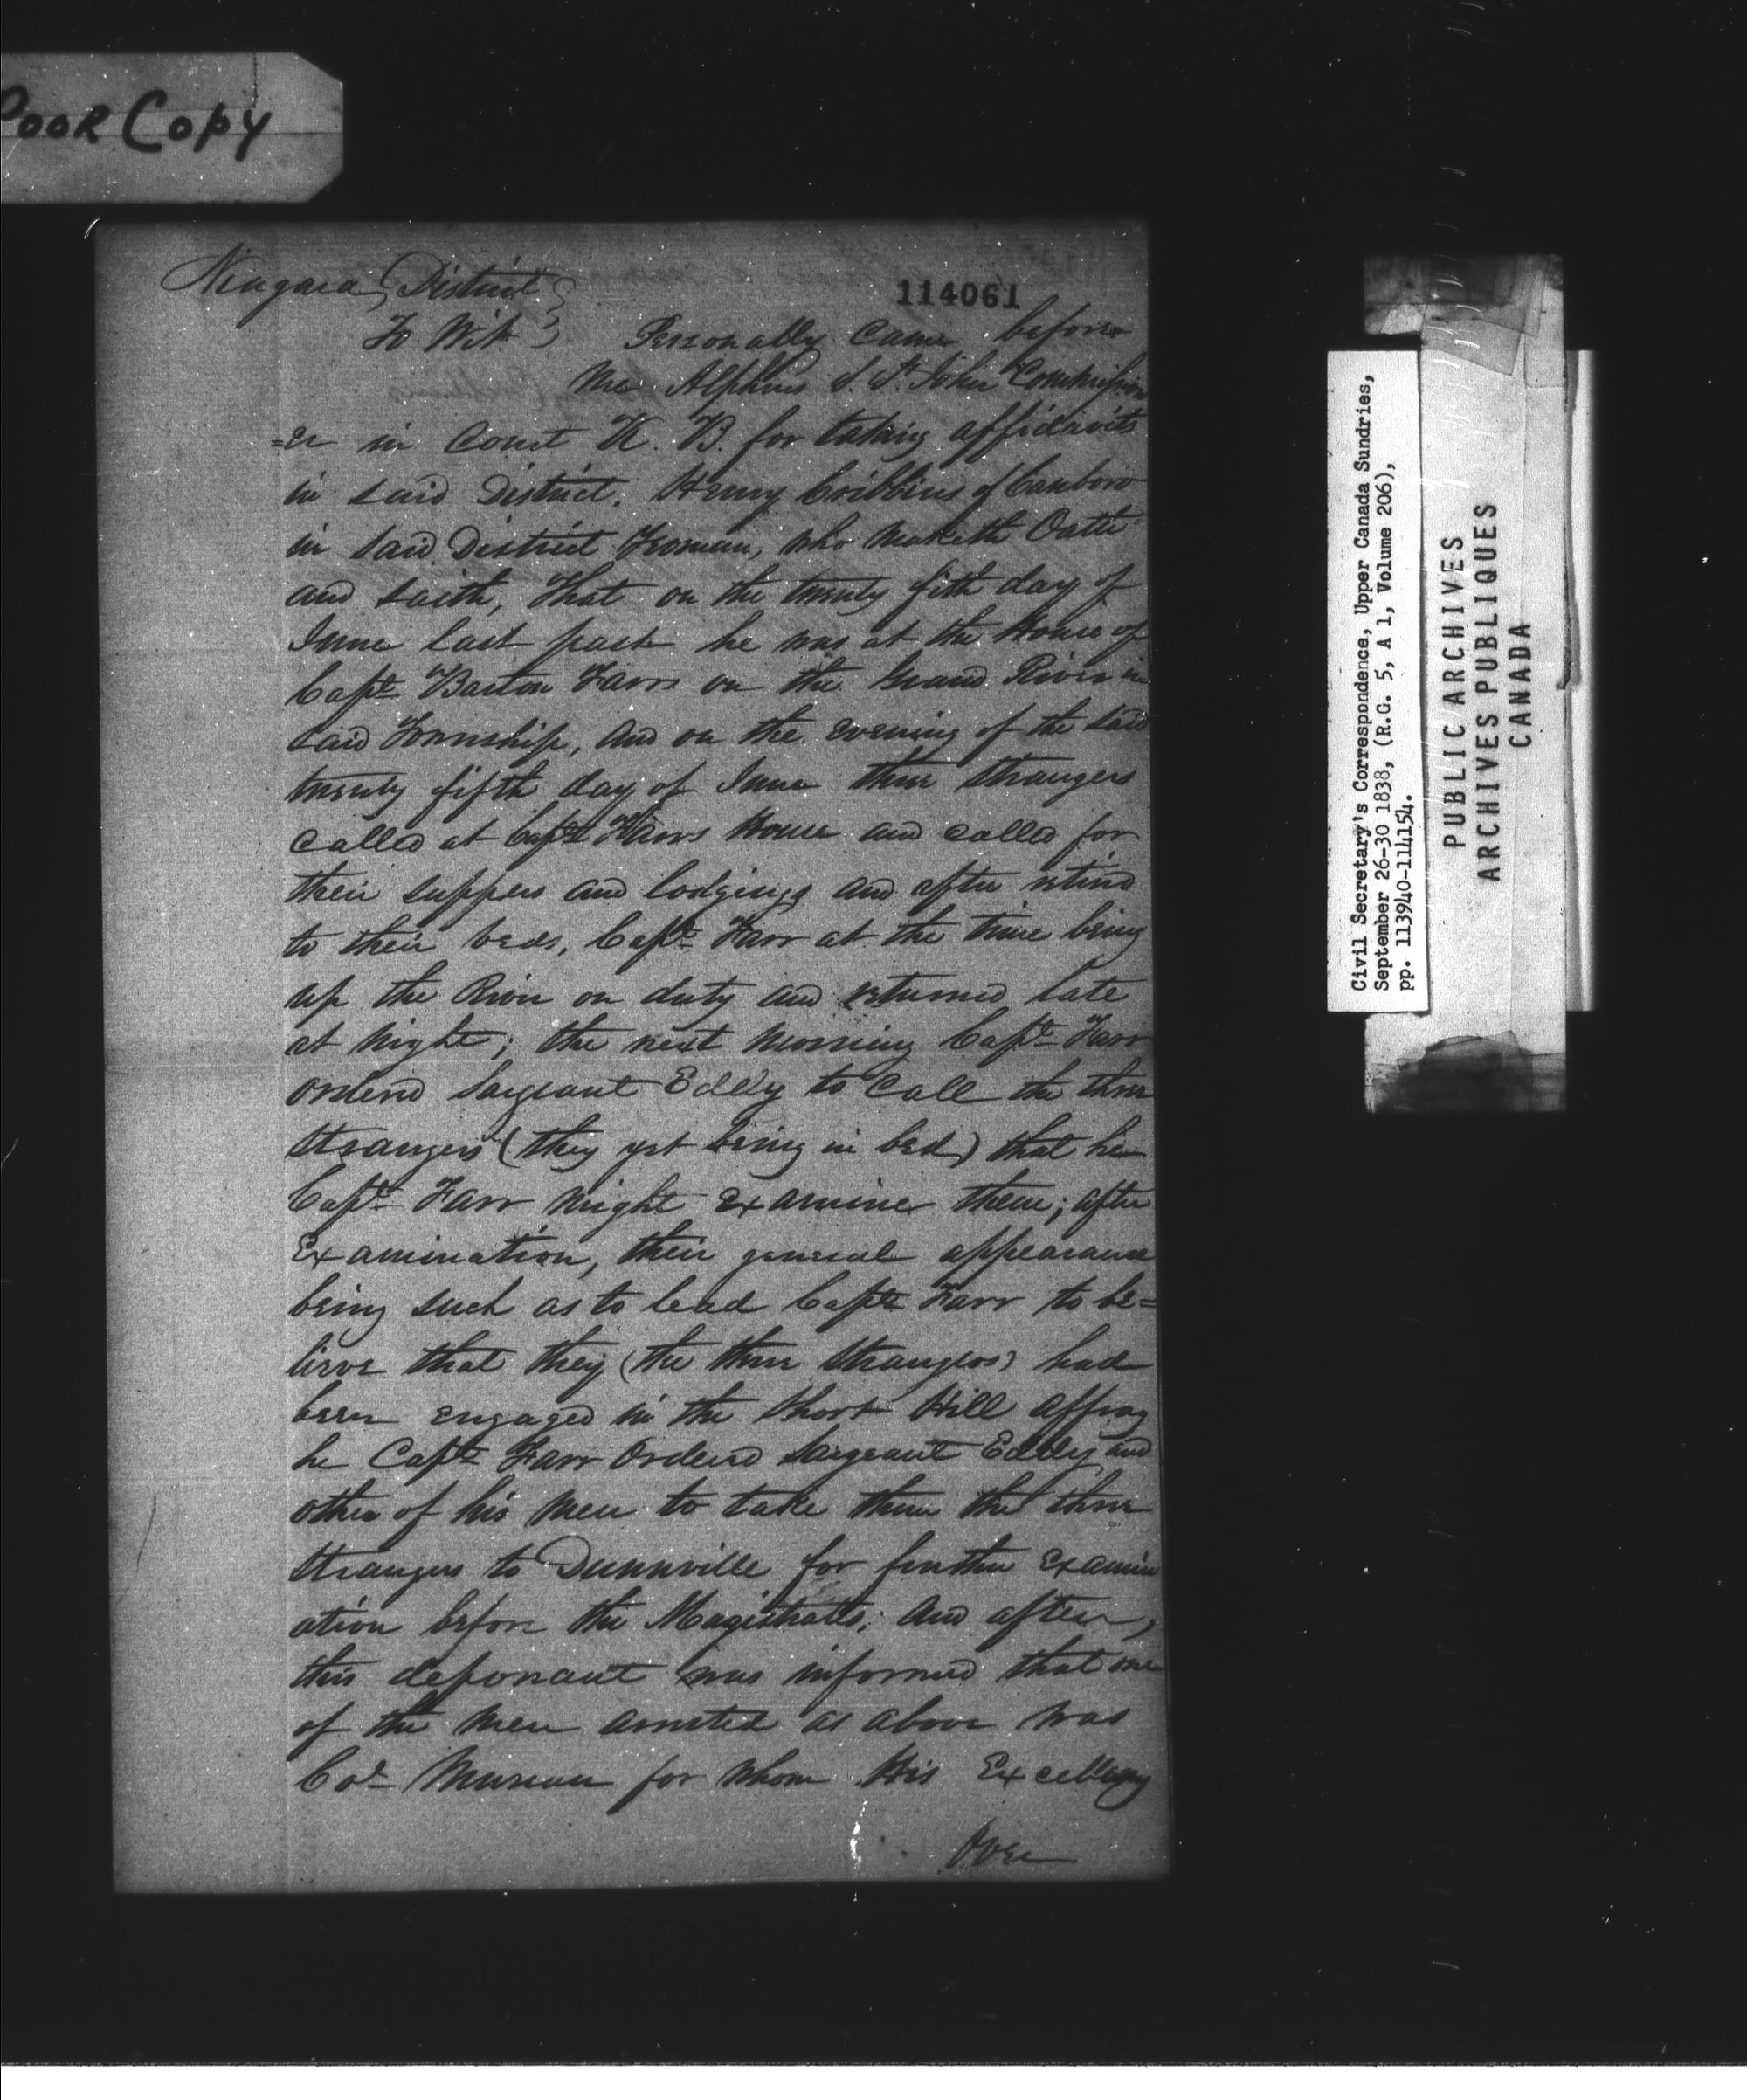 Poor Copy
114061
Niagara District
To Wit Personally Came before
me Alpheus S. St. John Commission
=er in Court K. B. for taking affidavits
in said District, Henry Cribbins of Canboro
in said District Yeoman, who maketh Oath
and saith, That on the twenty fith day of
June last past he was at the House of
Capt Barton Farrs on the Grand River in
said Township, and on the evening of the said
twenty fifth day of June three strangers
called at Capt Farrs House and called for
their suppers and lodgings and after retired
to their beds, Capt Farr at the time being
up the River on duty and returned late
at night; the next morning Capt Farr
orderd Sargeant Eddy to call the three
strangers (they yet being in bed) that he
Capt Farr might examine them; after
Examination, their general appearance
being such as to lead Capt Farr to be=
lieve that they (the three strangers) had
been engaged in the Short Hill affray
he Capt Farr Orderd Sargeant Eddy and
other of his men to take them the three
strangers to Dunnville for further examin
ation before the Magistrates; and after,
this deponant was informed that one
of the men arrested as above was
for whom His Excellency
Over
Civil Secretary's Correspondence, Upper Canada Sundries,
September 26-30 1838, (R.G. 5, A 1, Volume 206),
pp. 113940-114154.
PUBLIC ARCHIVES
ARCHIVES PUBLIQUES
CANADA